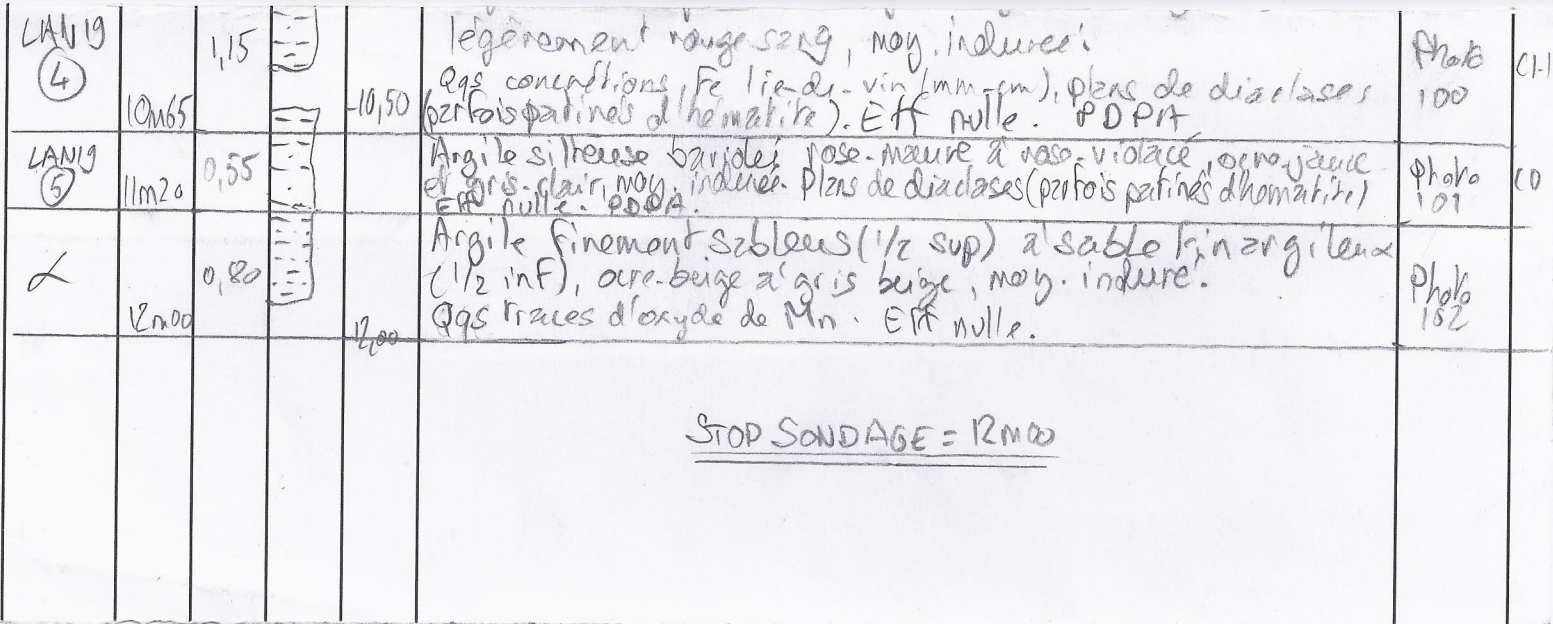 LAN19 4 10m65 1,15 -10,50
légèrement rouge sang, moy. indurée.
Qqs concrétions, Fe lie-de-vin (mm-cm), plans de diaclases
(parfois patinés d'hématite). Eff nulle. PDPA
Photo 100 C1-1
LAN19 5 11m20 0,55
Argile silteuse bariolée rose-mauve à rose-violacé, ocre-jaune
et gris-clair, moy. indurée. Plans de diaclases (parfois patinés d'hématite)
Eff nulle. PDPA.
Photo 101 C0
L 12m00 0,80 12,00
Argile finement sableus (1/2 sup) à sable fin argileux
(1/2 inf), ocre-beige à gris beige, moy. induré.
Qqs traces d'oxyde de Mn. Eff nulle.
Photo 102
STOP SONDAGE = 12m00